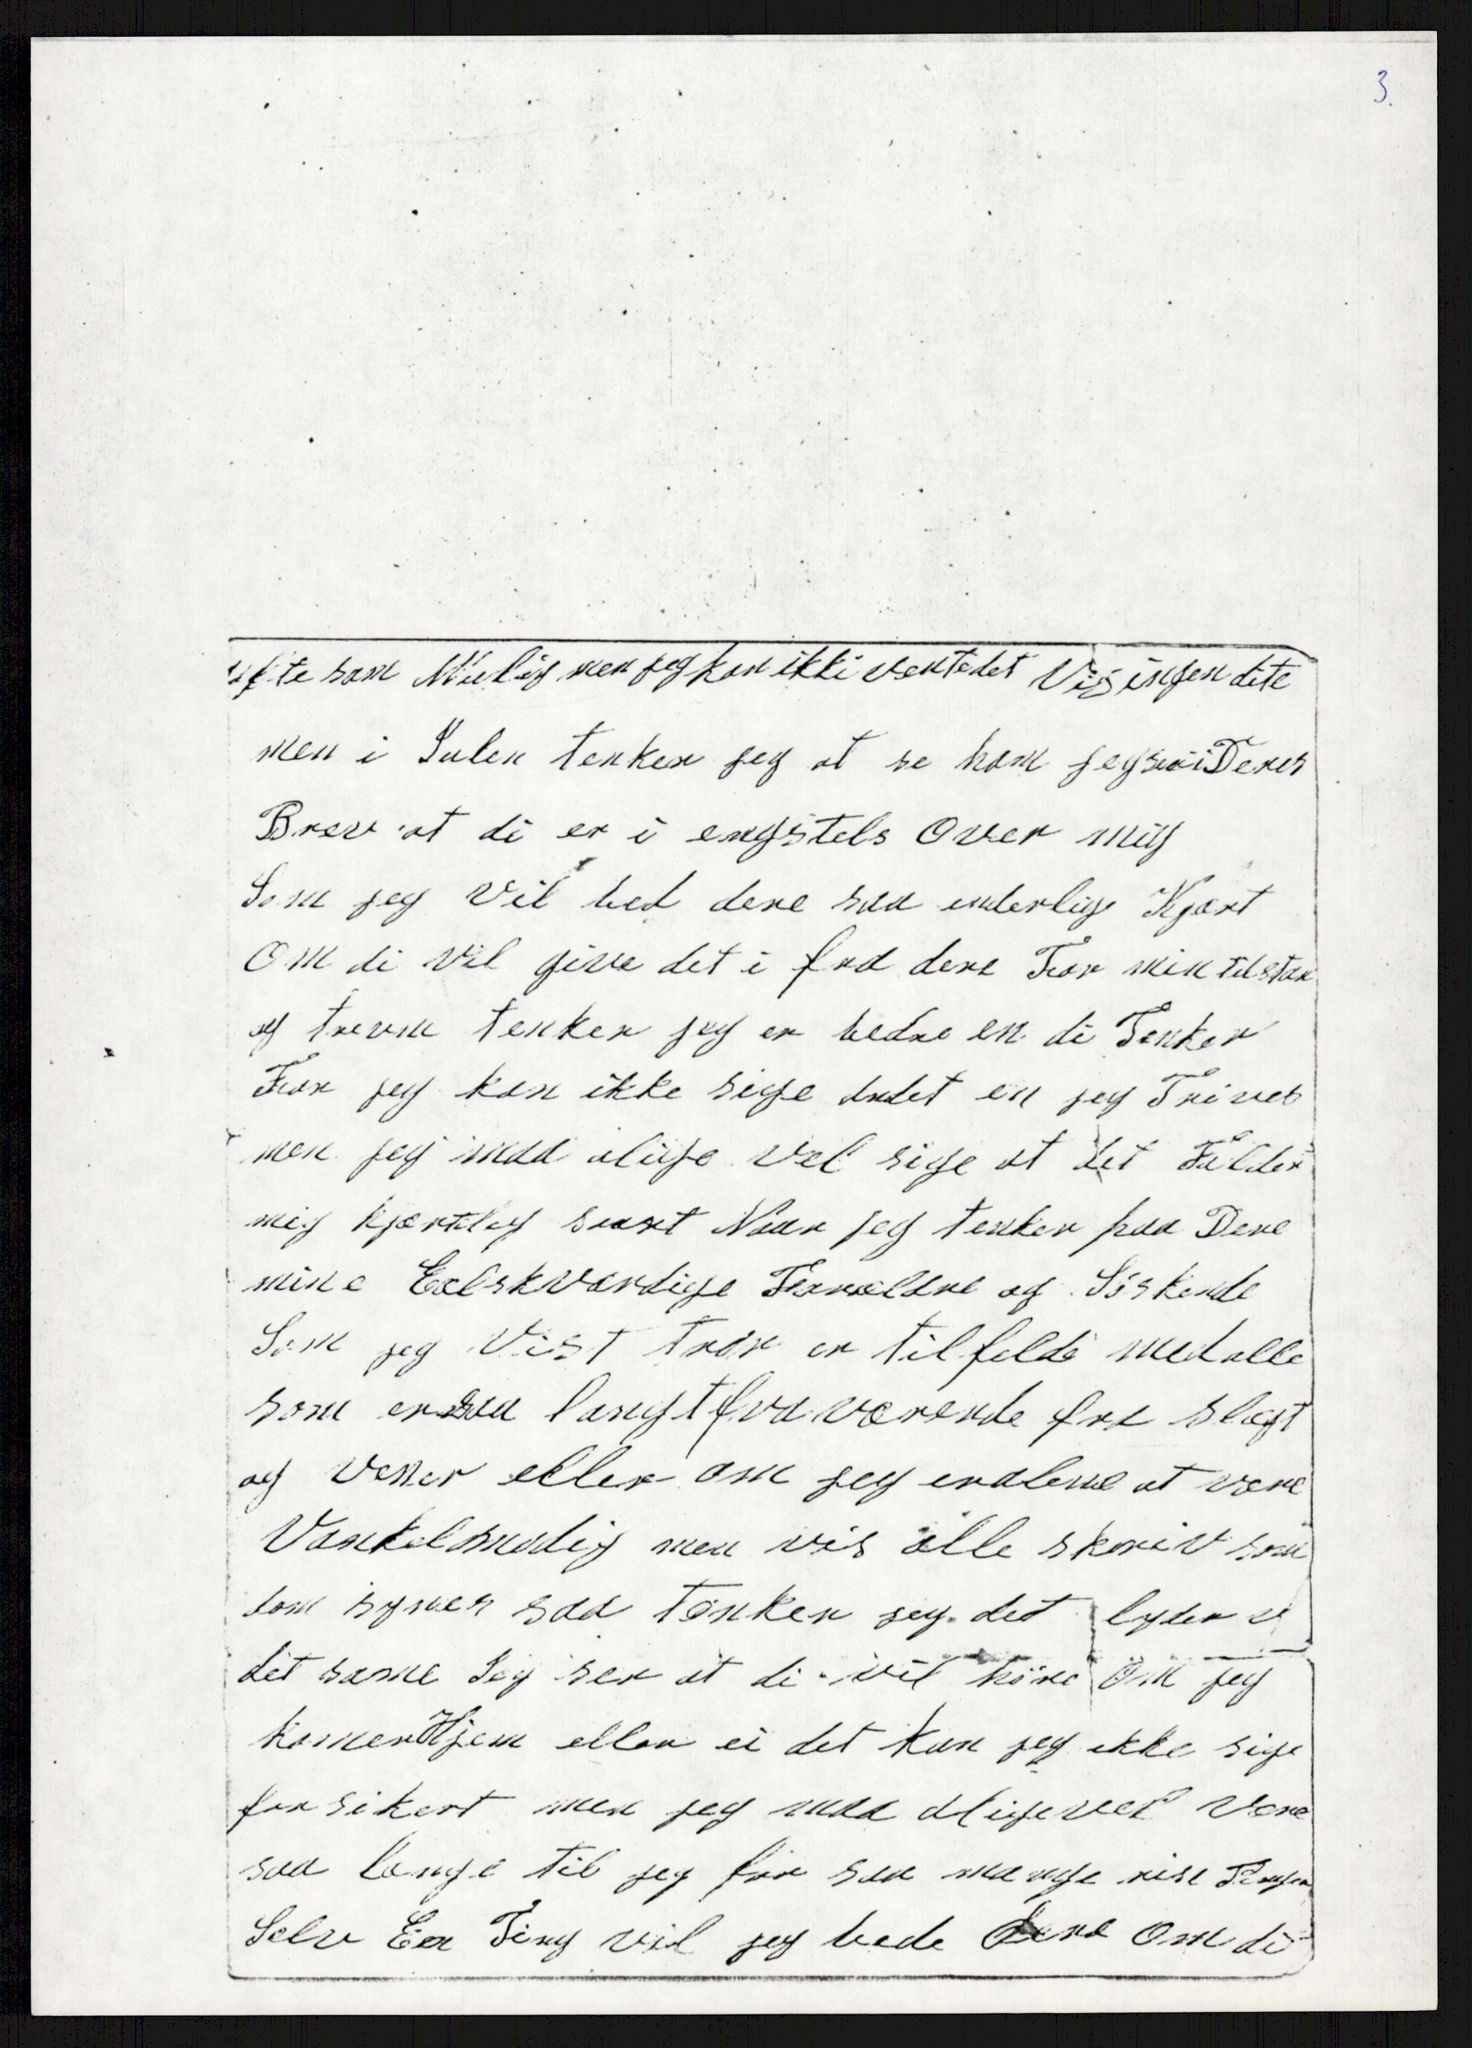 3.
ofte som Muelig men jeg kan ikki ventedet Vis ingen dite
men i Julen tenker jeg at se ham jeg ser i Deres
Brev at di er i engstels Over mig
Som jeg Vil bed dere saa enderlige Kjært
Om di Vil give det i fra dere For min tilstan
og trevne tenker jeg er bedre en di Tenker
For jeg kan ikke sige andet en jeg Trives
men jeg maa alige Vel sige at det Falder
mig kjærtelig svart Naar jeg tenker paa Dere
mine Eælskværdige Foræeldre og Söskende
Som jeg Vist tror er tilfelde med alle
som er saa langt fra værende fra slægt
og Venner eller om jeg er alene at være
Vankelmodig men vis alle skreiv som
som synes saa tænker jeg det lyder
det same Jeg ser at di vil höre Om jeg
komer Hjem eller ei det kan jeg ikke sige
for sikert men jeg maa aligevel Være
saa længe til jeg faar saa mange rise Penger
Selv En Ting vil jeg bede Dere Om di